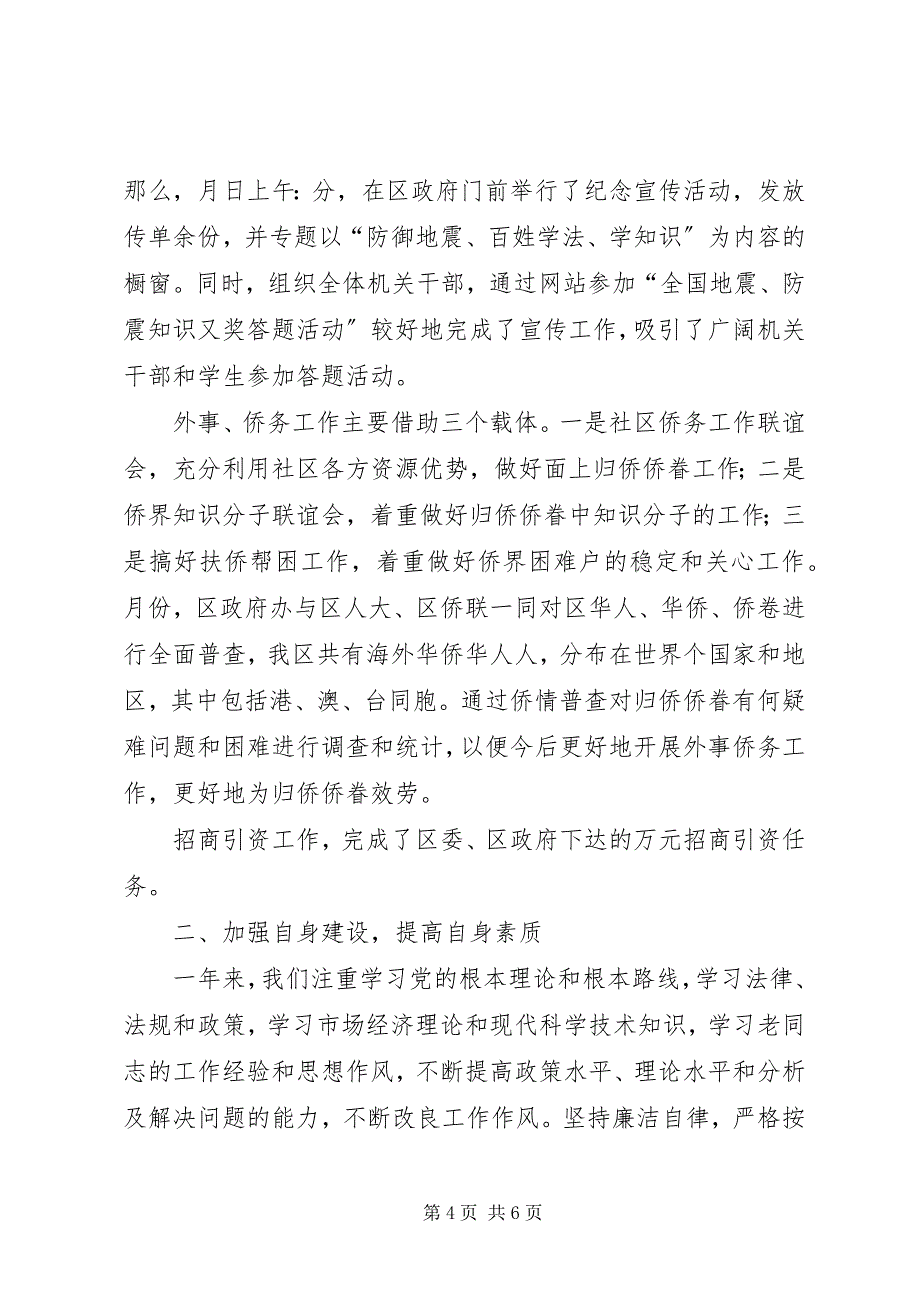 那么，月日上午：分，在区政府门前举行了纪念宣传活动，发放
传单余份，并专题以“防御地震、百姓学法、学知识〞为内容的
橱窗。同时，组织全体机关干部，通过网站参加“全国地震、防
震知识又奖答题活动〞较好地完成了宣传工作，吸引了广阔机关
干部和学生参加答题活动。
外事、侨务工作主要借助三个载体。一是社区侨务工作联谊
会，充分利用社区各方资源优势，做好面上归侨侨眷工作；二是
侨界知识分子联谊会，着重做好归侨侨眷中知识分子的工作；三
是搞好扶侨帮困工作，着重做好侨界困难户的稳定和关心工作。
月份，区政府办与区人大、区侨联一同对区华人、华侨、侨卷进
行全面普查，我区共有海外华侨华人人，分布在世界个国家和地
区，其中包括港、澳、台同胞。通过侨情普查对归侨侨眷有何疑
难问题和困难进行调查和统计，以便今后更好地开展外事侨务工
作，更好地为归侨侨眷效劳。
招商引资工作，完成了区委、区政府下达的万元招商引资任
务。
二、加强自身建设，提高自身素质
一年来，我们注重学习党的根本理论和根本路线，学习法律、
法规和政策，学习市场经济理论和现代科学技术知识，学习老同
志的工作经验和思想作风，不断提高政策水平、理论水平和分析
及解决问题的能力，不断改良工作作风。坚持廉洁自律，严格按
第 4 页 共 6 页